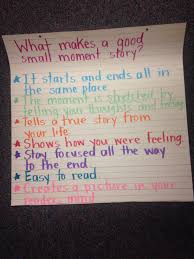 What makes a good
small moment story?
★ It starts and ends all in
the same place
★ The moment is stretched by
telling your thoughts and
★ Tells a true story from
your life.
★ Shows how you were feeling.
★ Stay focused all the way
to the end
★ Easy to read
★ Creates a picture in your
readers mind